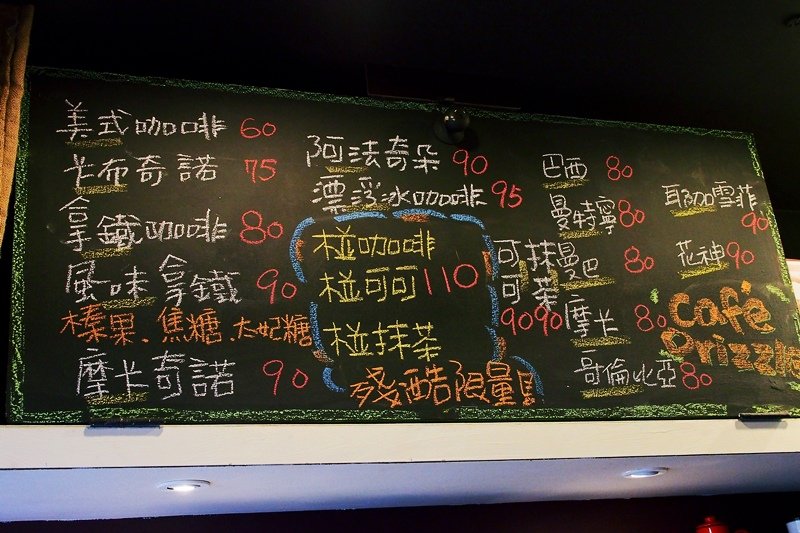 美式咖啡 60
卡布奇諾 75
拿鐵咖啡 80
風味拿鐵 90
榛果、焦糖、太妃糖
摩卡奇諾 90
阿法奇朵 90
漂浮冰咖啡 95
椪咖啡
椪可可 110
椪抹茶
殘酷限量!
可可 90
抹茶 90
巴西 80
曼特寧 80
曼巴 80
摩卡 80
哥倫比亞 80
耶加雪菲 90
花神 90
Café
Drizzle